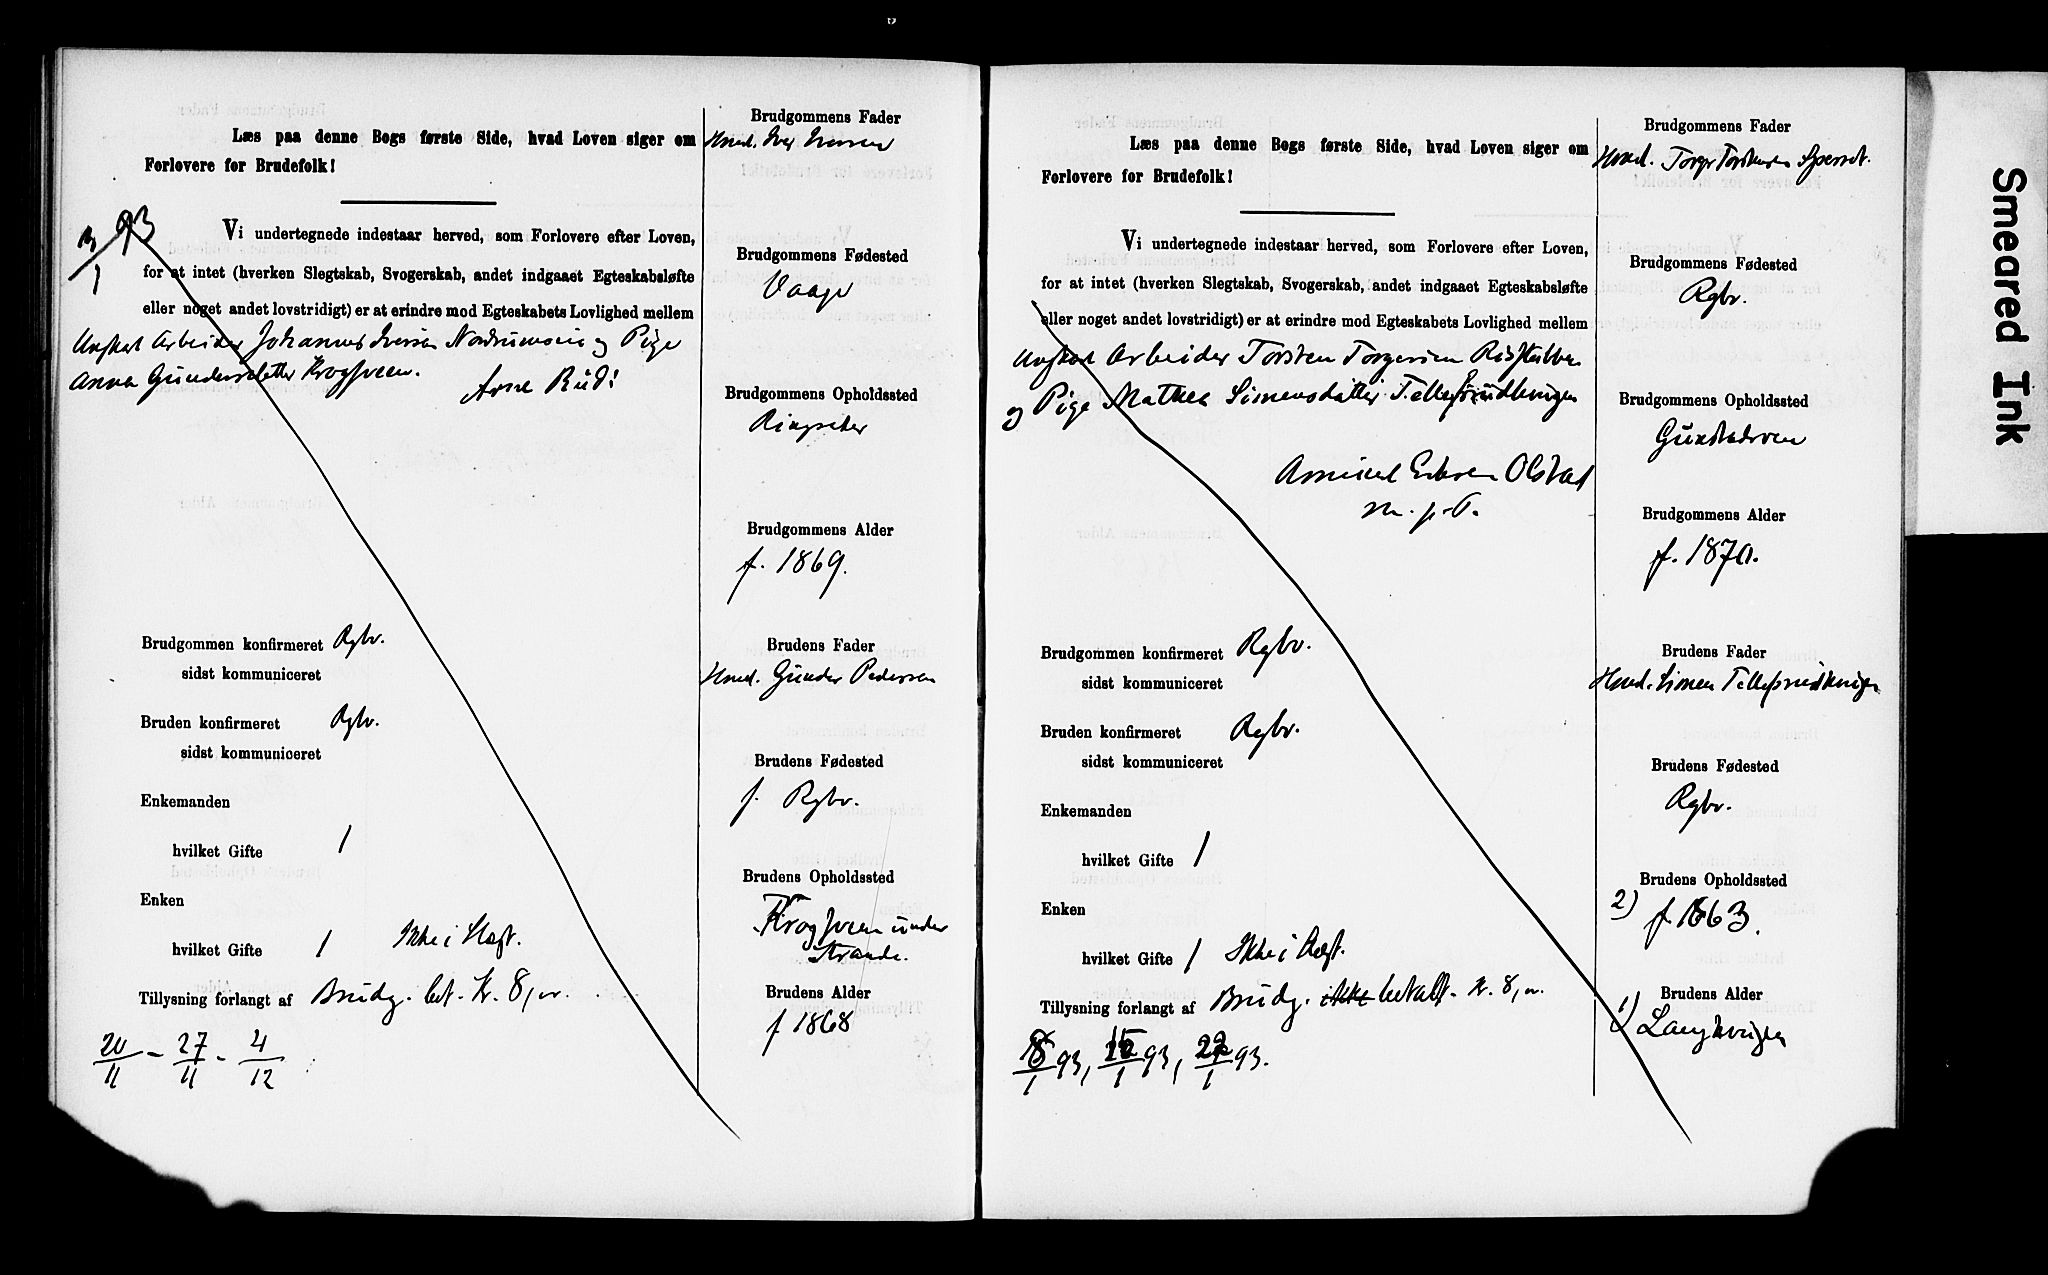 Læs paa denne Bogs første Side, hvad Loven siger om
Forlovere for Brudefolk!
93
1
Vi undertegnede indestaar herved, som Forlovere efter Loven,
for at intet (hverken Slegtskab, Svogerskab, andet indgaaet Egteskabsløfte
eller noget andet lovstridigt) er at erindre mod Egteskabets Lovlighed mellem
Ungkarl Arbeider Johannes Iversen og Pige
Anna Gundersdatter Krogsveen.
Arne Rud:
Brudgommen konfirmeret Rgbr.
sidst kommuniceret
Bruden konfirmeret Rgbr.
sidst kommuniceret
Enkemanden
hvilket Gifte 1
Enken
hvilket Gifte 1 Ikke i Slegt.
Tillysning forlangt af Brudg. bet. Kr. 8,00.
20/11 - 27/11 - 4/12
Brudgommens Fader
Husmd. Iver Iversen
Brudgommens Fødested
Vaage
Brudgommens Opholdssted
Ringseter
Brudgommens Alder
f. 1869.
Brudens Fader
Husmd. Gunder Pedersen
Brudens Fødested
f. Rgbr.
Brudens Opholdssted
Krogsveen under
Strande.
Brudens Alder
f 1868
Læs paa denne Bogs første Side, hvad Loven siger om
Forlovere for Brudefolk!
Vi undertegnede indestaar herved, som Forlovere efter Loven,
for at intet (hverken Slegtskab, Svogerskab, andet indgaaet Egteskabsløfte
eller noget andet lovstridigt) er at erindre mod Egteskabets Lovlighed mellem
Ungkarl Arbeider Torsten Torgersen
og Pige Mathea Simensdatter
Olstad
m. p. P.
Brudgommen konfirmeret Rgbr.
sidst kommuniceret
Bruden konfirmeret Rgbr.
sidst kommuniceret
Enkemanden
hvilket Gifte 1
Enken
hvilket Gifte 1 Ikke i Slegt.
Tillysning forlangt af Brudg. ikke betalt. Kr. 8,00.
8/1 93, 15/1 93, 22/1 93.
Brudgommens Fader
Husmd. Torger Torstensen
Brudgommens Fødested
Rgbr.
Brudgommens Opholdssted
Brudgommens Alder
f. 1870.
Brudens Fader
Husmd. Simen
Brudens Fødested
Rgbr.
Brudens Opholdssted
2) f. 1863.
Brudens Alder
1)
Smeared Ink